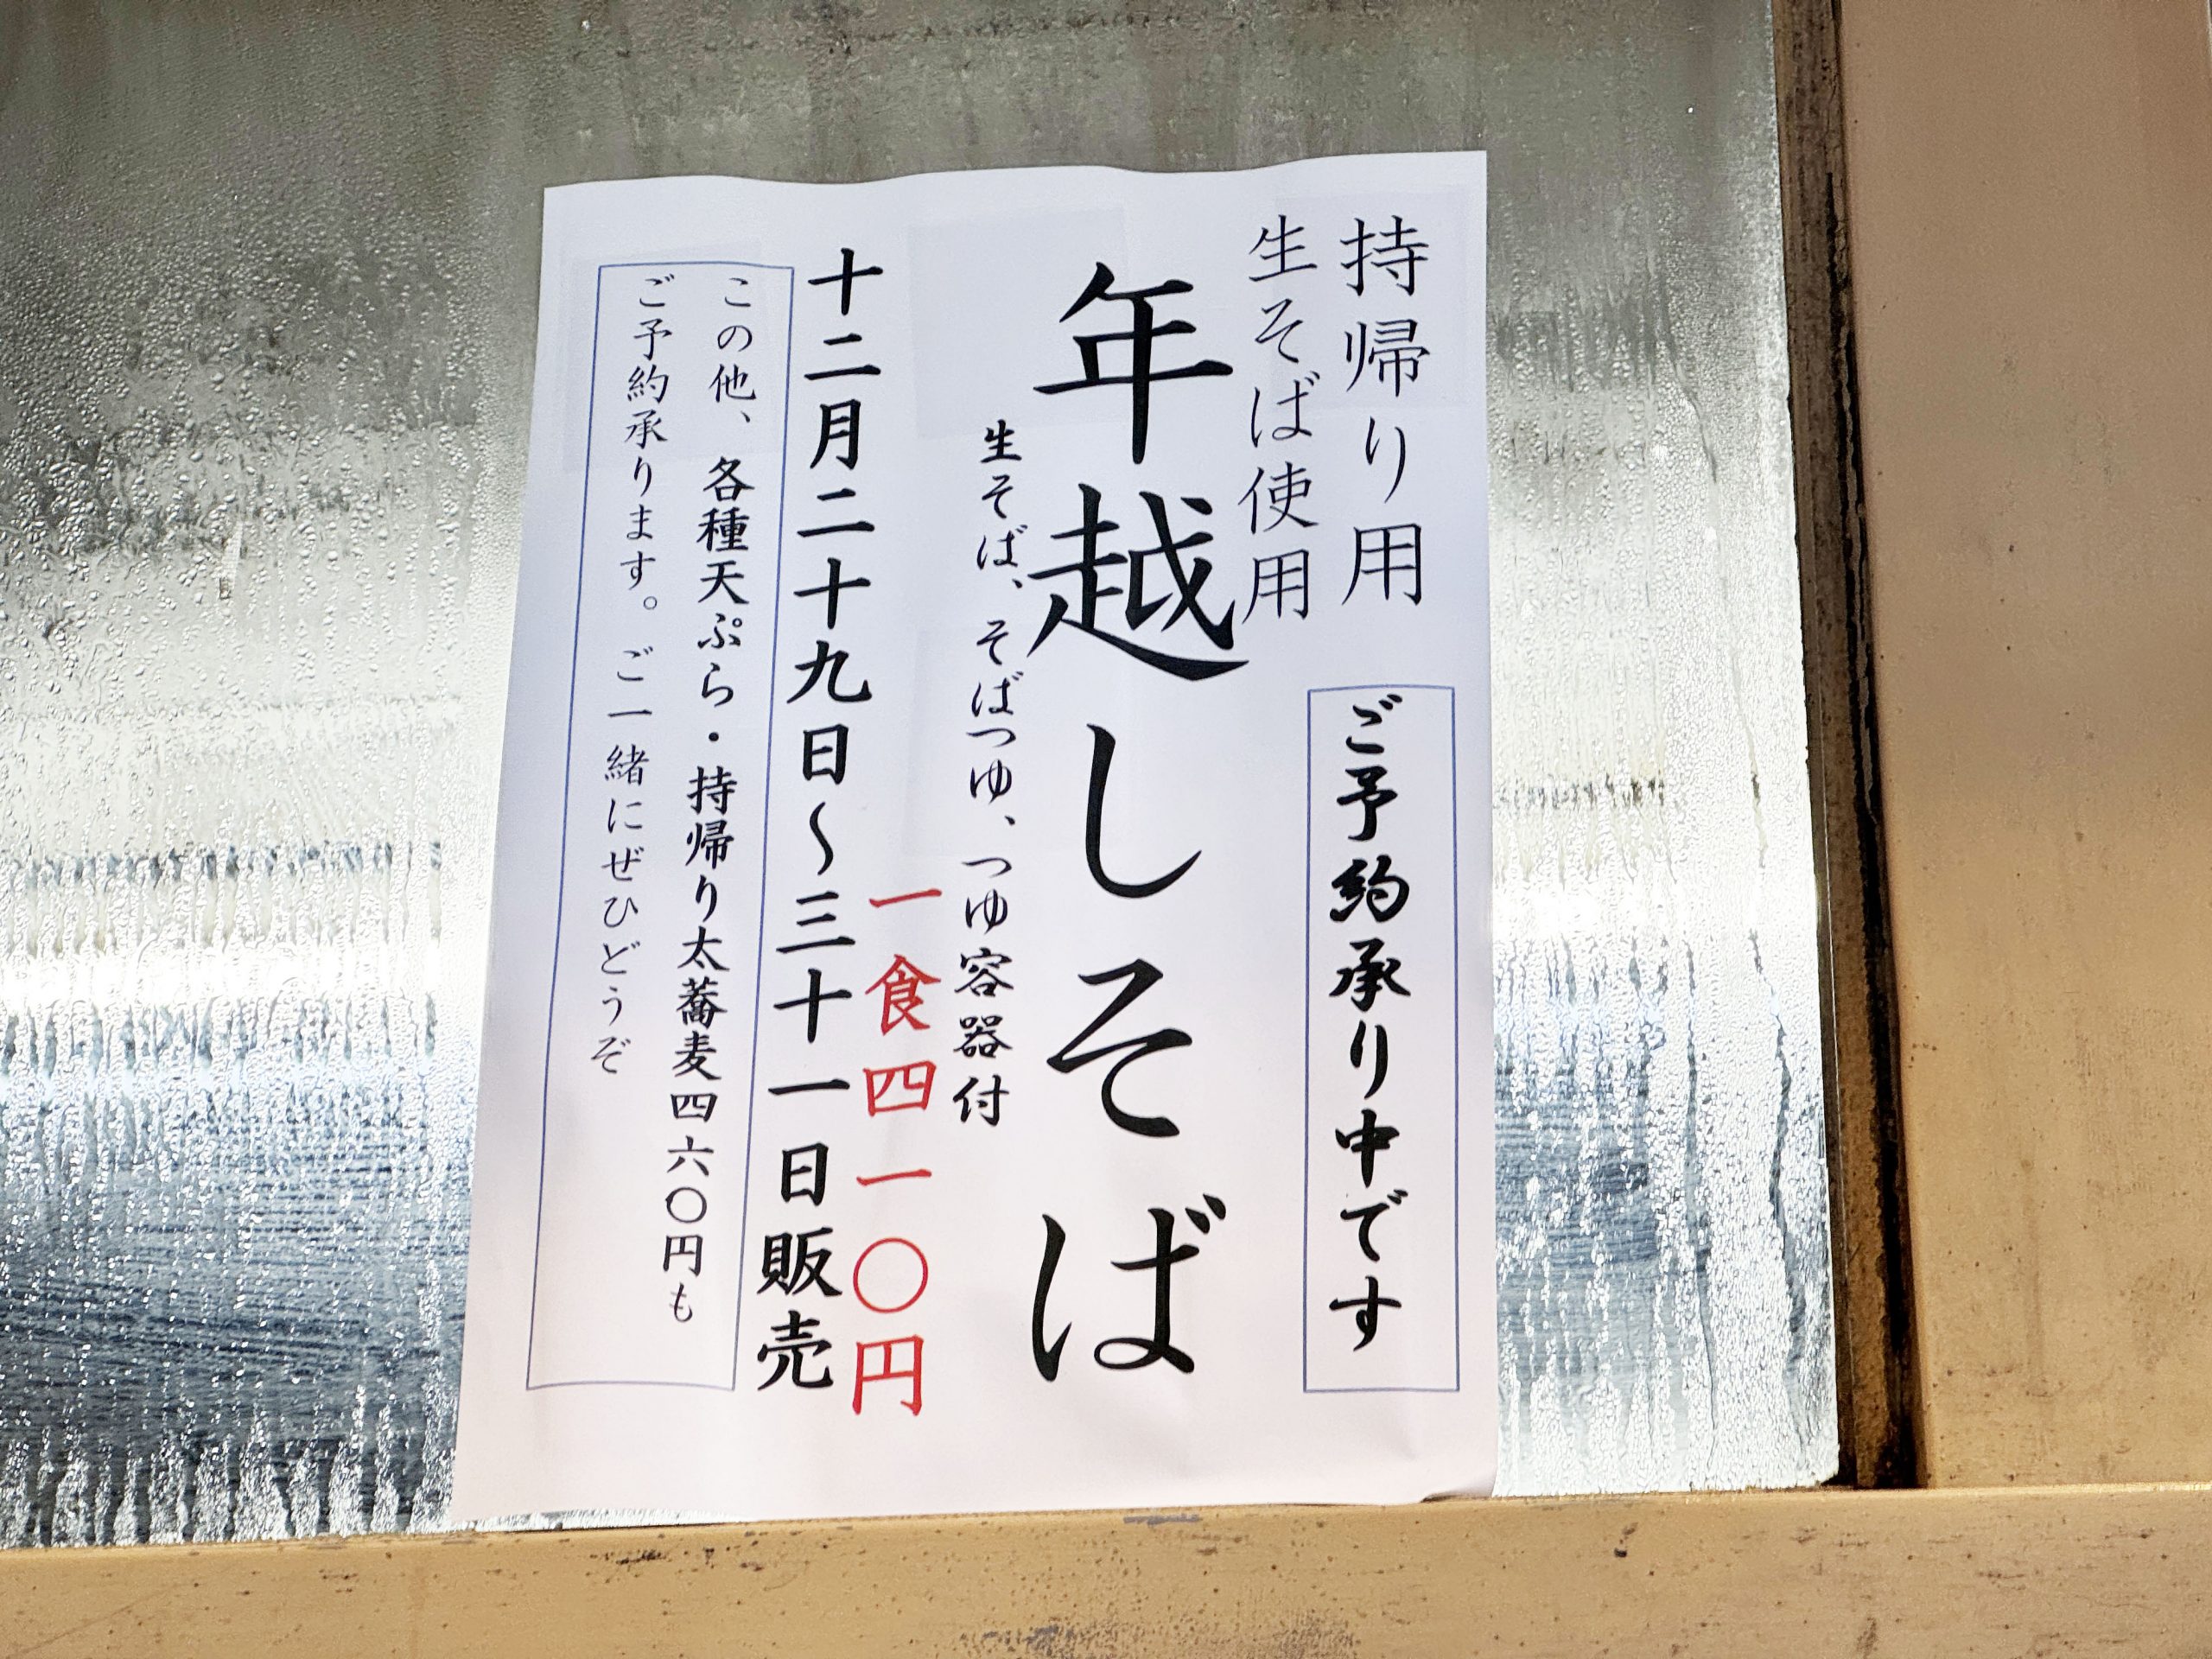 持帰り用
ご予約承り中です
生そば使用
年越しそば
生そば、そばつゆ、つゆ容器付
一食四一〇円
十二月二十九日～三十一日販売
この他、各種天ぷら・持帰り太蕎麦四六〇円も
ご予約承ります。ご一緒にぜひどうぞ